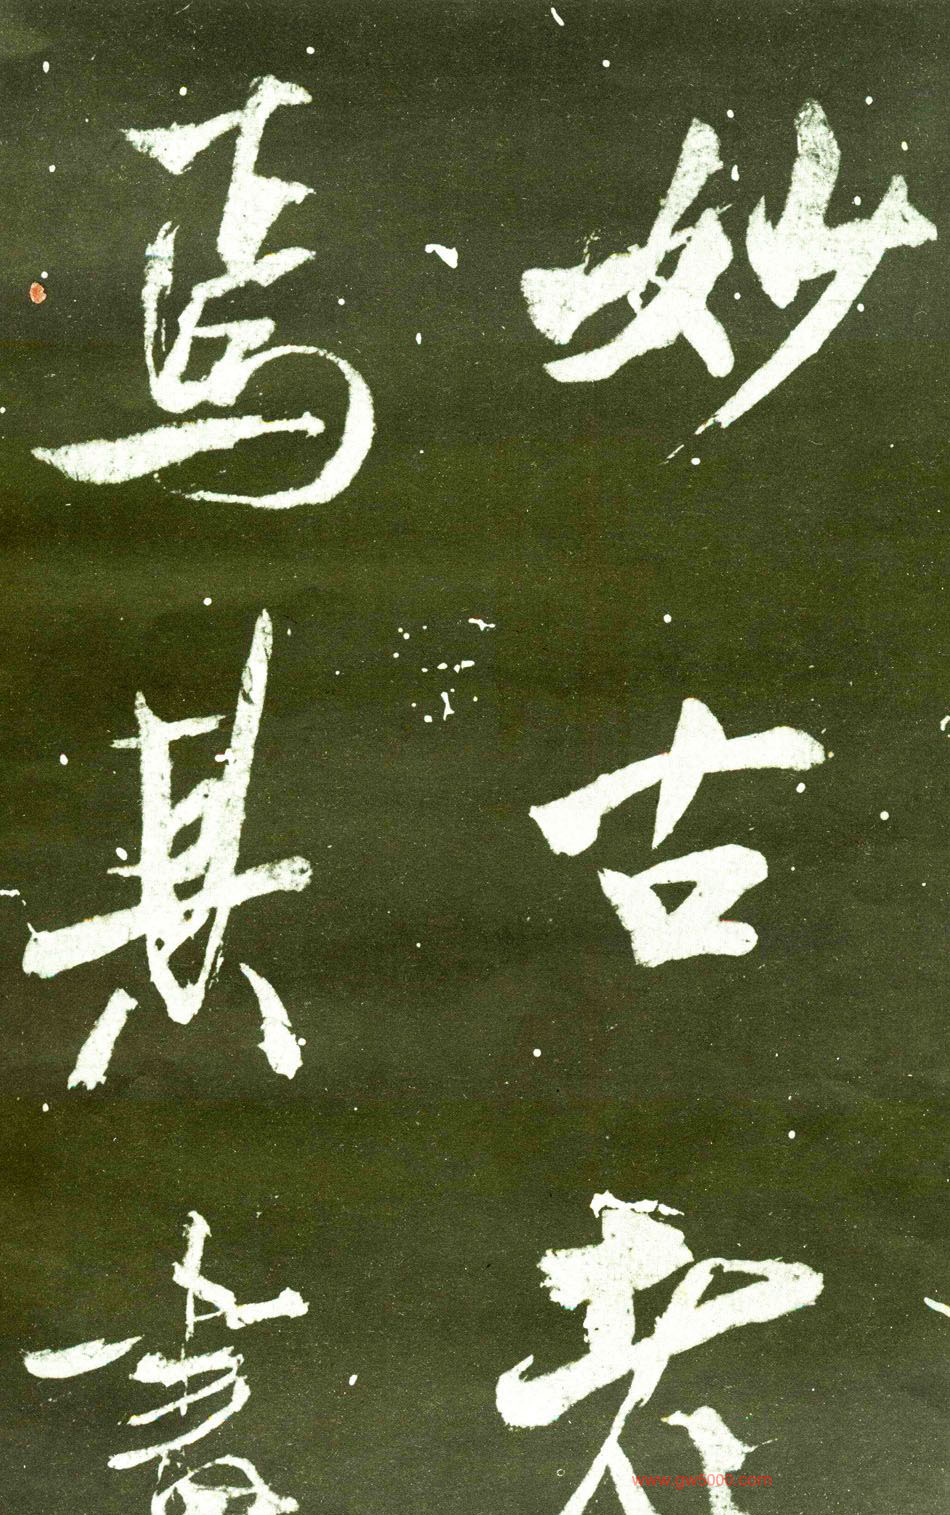 妙古老
焉其書
www.gw5000.com